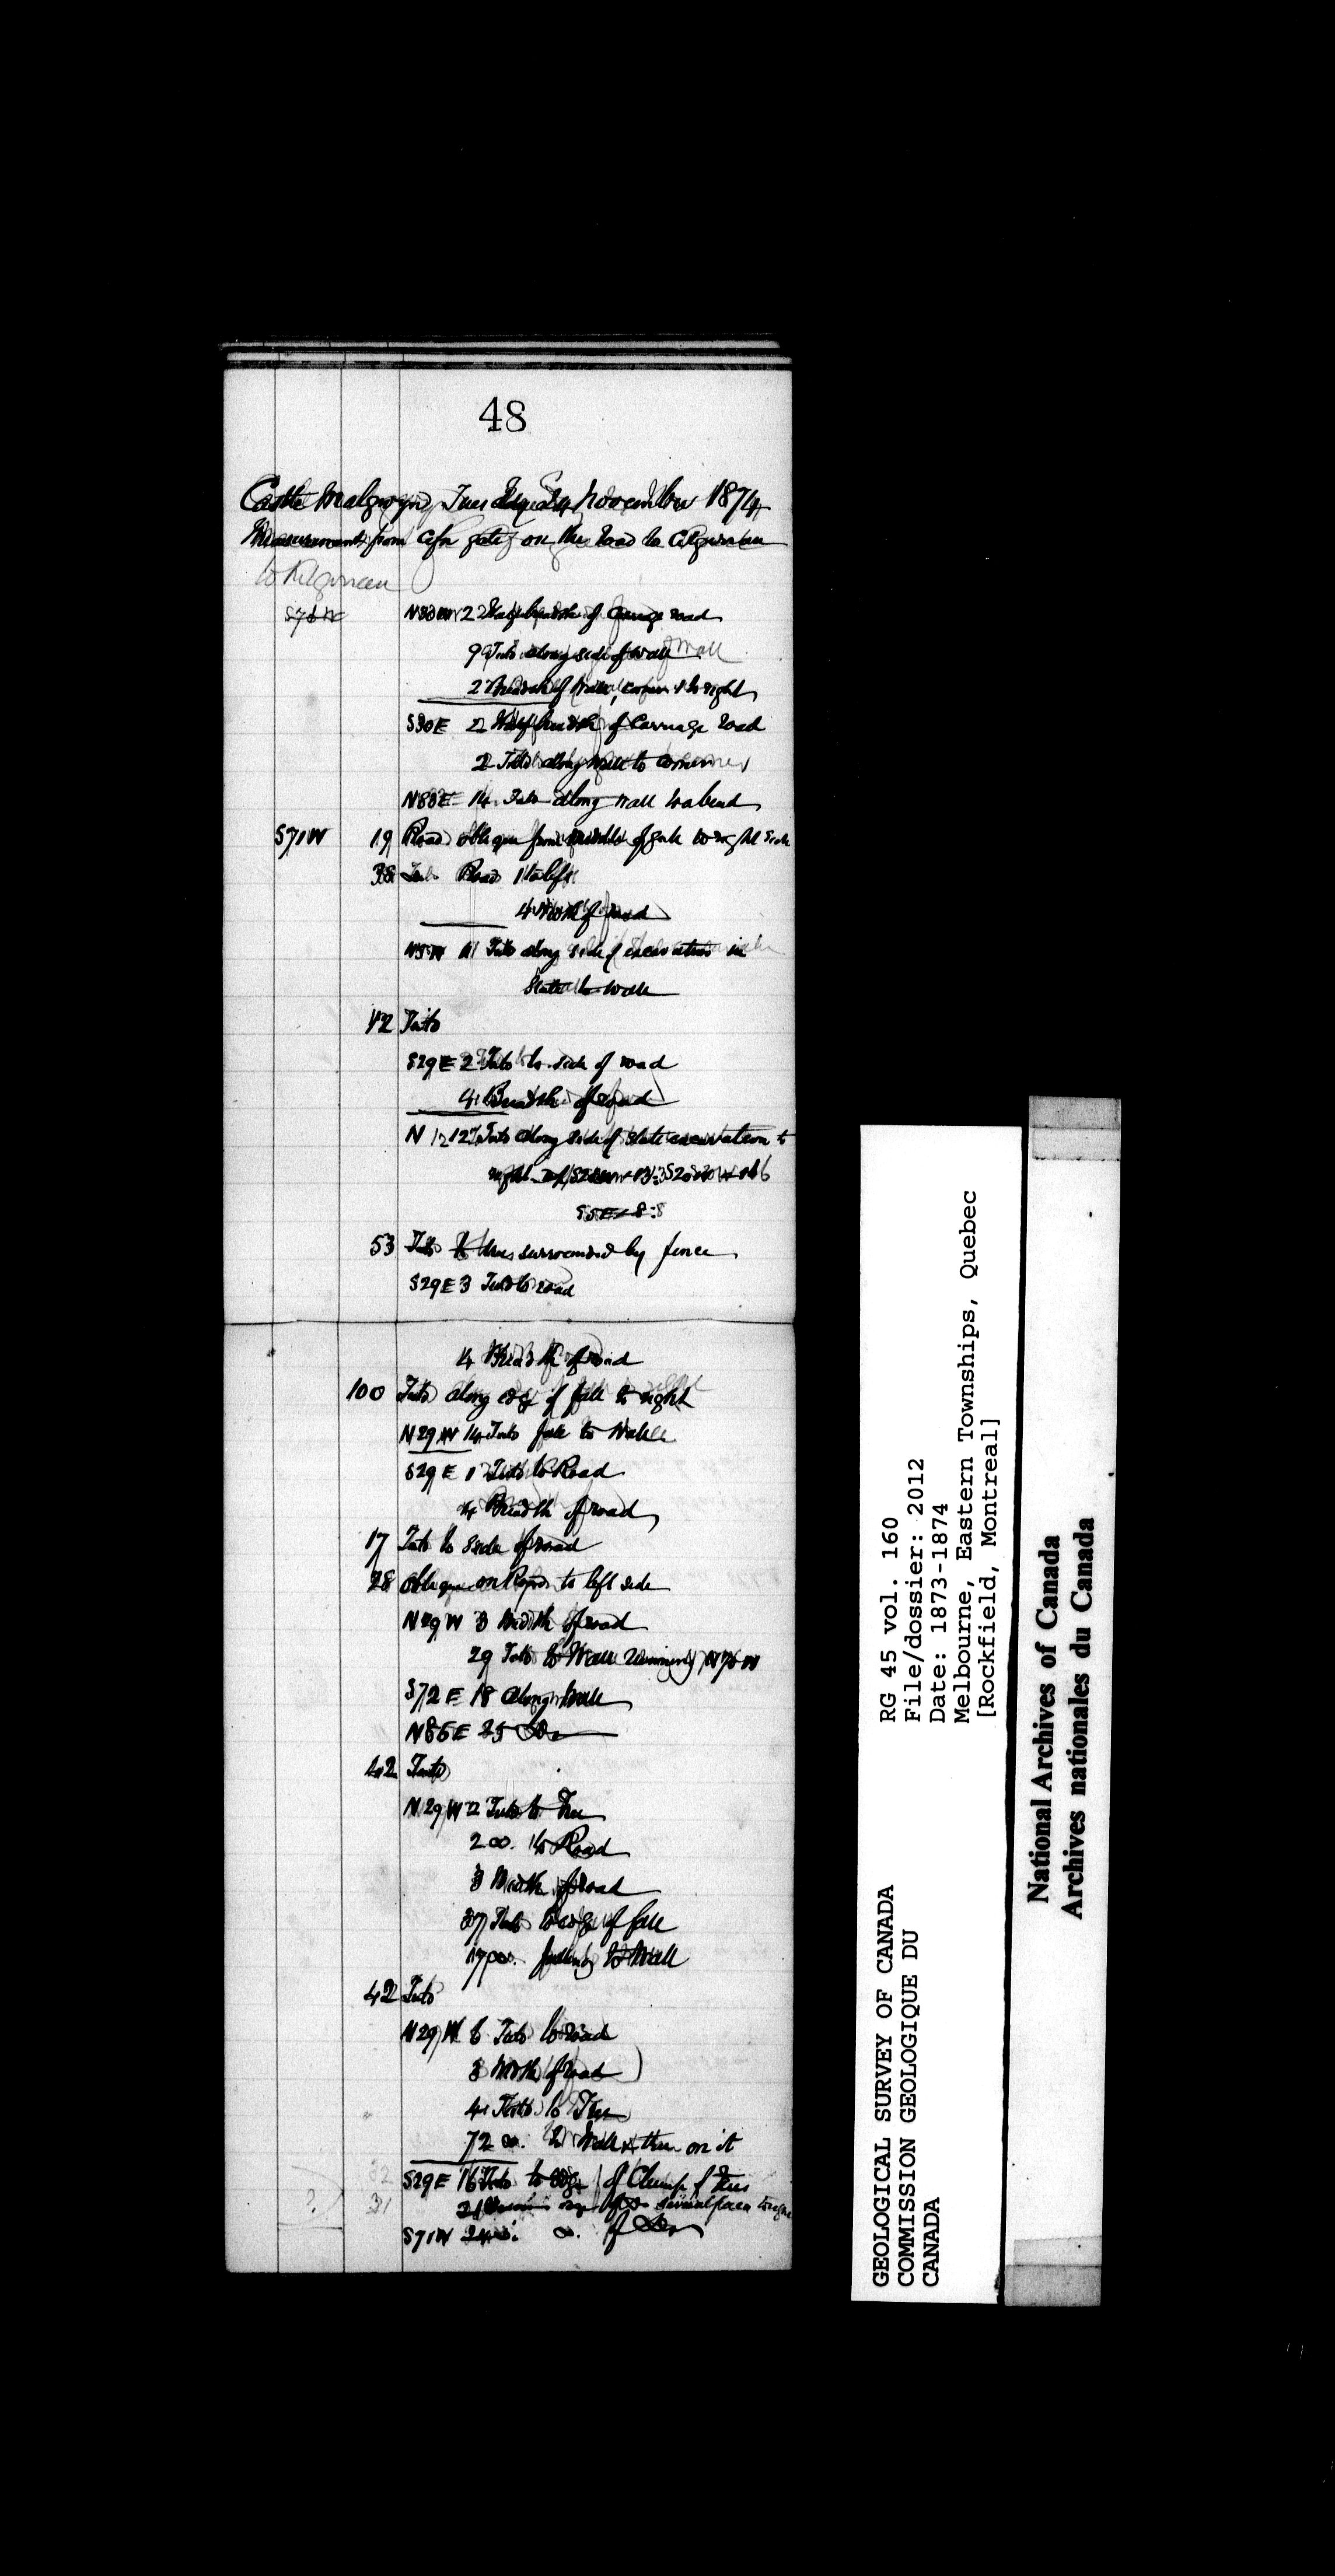 48
Castle Malgwyn, Tuesday 24 November 1874
Measurements from Cefn gate on the Road to Cilgerran
to Kilgerran
S76W N30W 2 Half breadth of Carriage road
9 Into along side of wall
2 Breadth of wall, corner to right
S30E 2 Half breadth of Carriage road
2 Into along wall to corner
N88E 14 Into along wall to a bend
S71W 19 Road oblique from middle of gate to right side
38 Into Road 1 to left
4 Width of road
N5W 11 Into along side of excavation in
Slate to wall
12 Into
S29E 2 Into to side of road
4 Breadth of road
N 12 12 Into along side of slate excavation to
right
S5E 8:8
53 Into trees surrounded by fence
S29E 3 Into to road
4 Breadth of road
100 Into along edge of fall to right
N29W 14 Into fall to Wall
S29E 1 Into to Road
4 Breadth of road
17 Into to side of road
28 Oblique on Road to left side
N29W 3 Width of road
29 Into to Wall running N75W
S72E 18 along Wall
N86E 25 Do
42 Into
N29W 2 Into to Tree
2 do. to Road
3 Width of road
37 Into to edge of fall
17 do. falling to Wall
42 Into
N29W 6 Into to road
3 Width of road
4 Into to Tree
72 do. to Wall & then on it
32 S29E 16 Into to edge of Clump of Trees
? 31 21 several
S71W 24 do. do. of Do
RG 45 vol. 160
File/dossier: 2012
Date: 1873-1874
Melbourne, Eastern Townships, Quebec
[Rockfield, Montreal]
GEOLOGICAL SURVEY OF CANADA
COMMISSION GEOLOGIQUE DU
CANADA
National Archives of Canada
Archives nationales du Canada